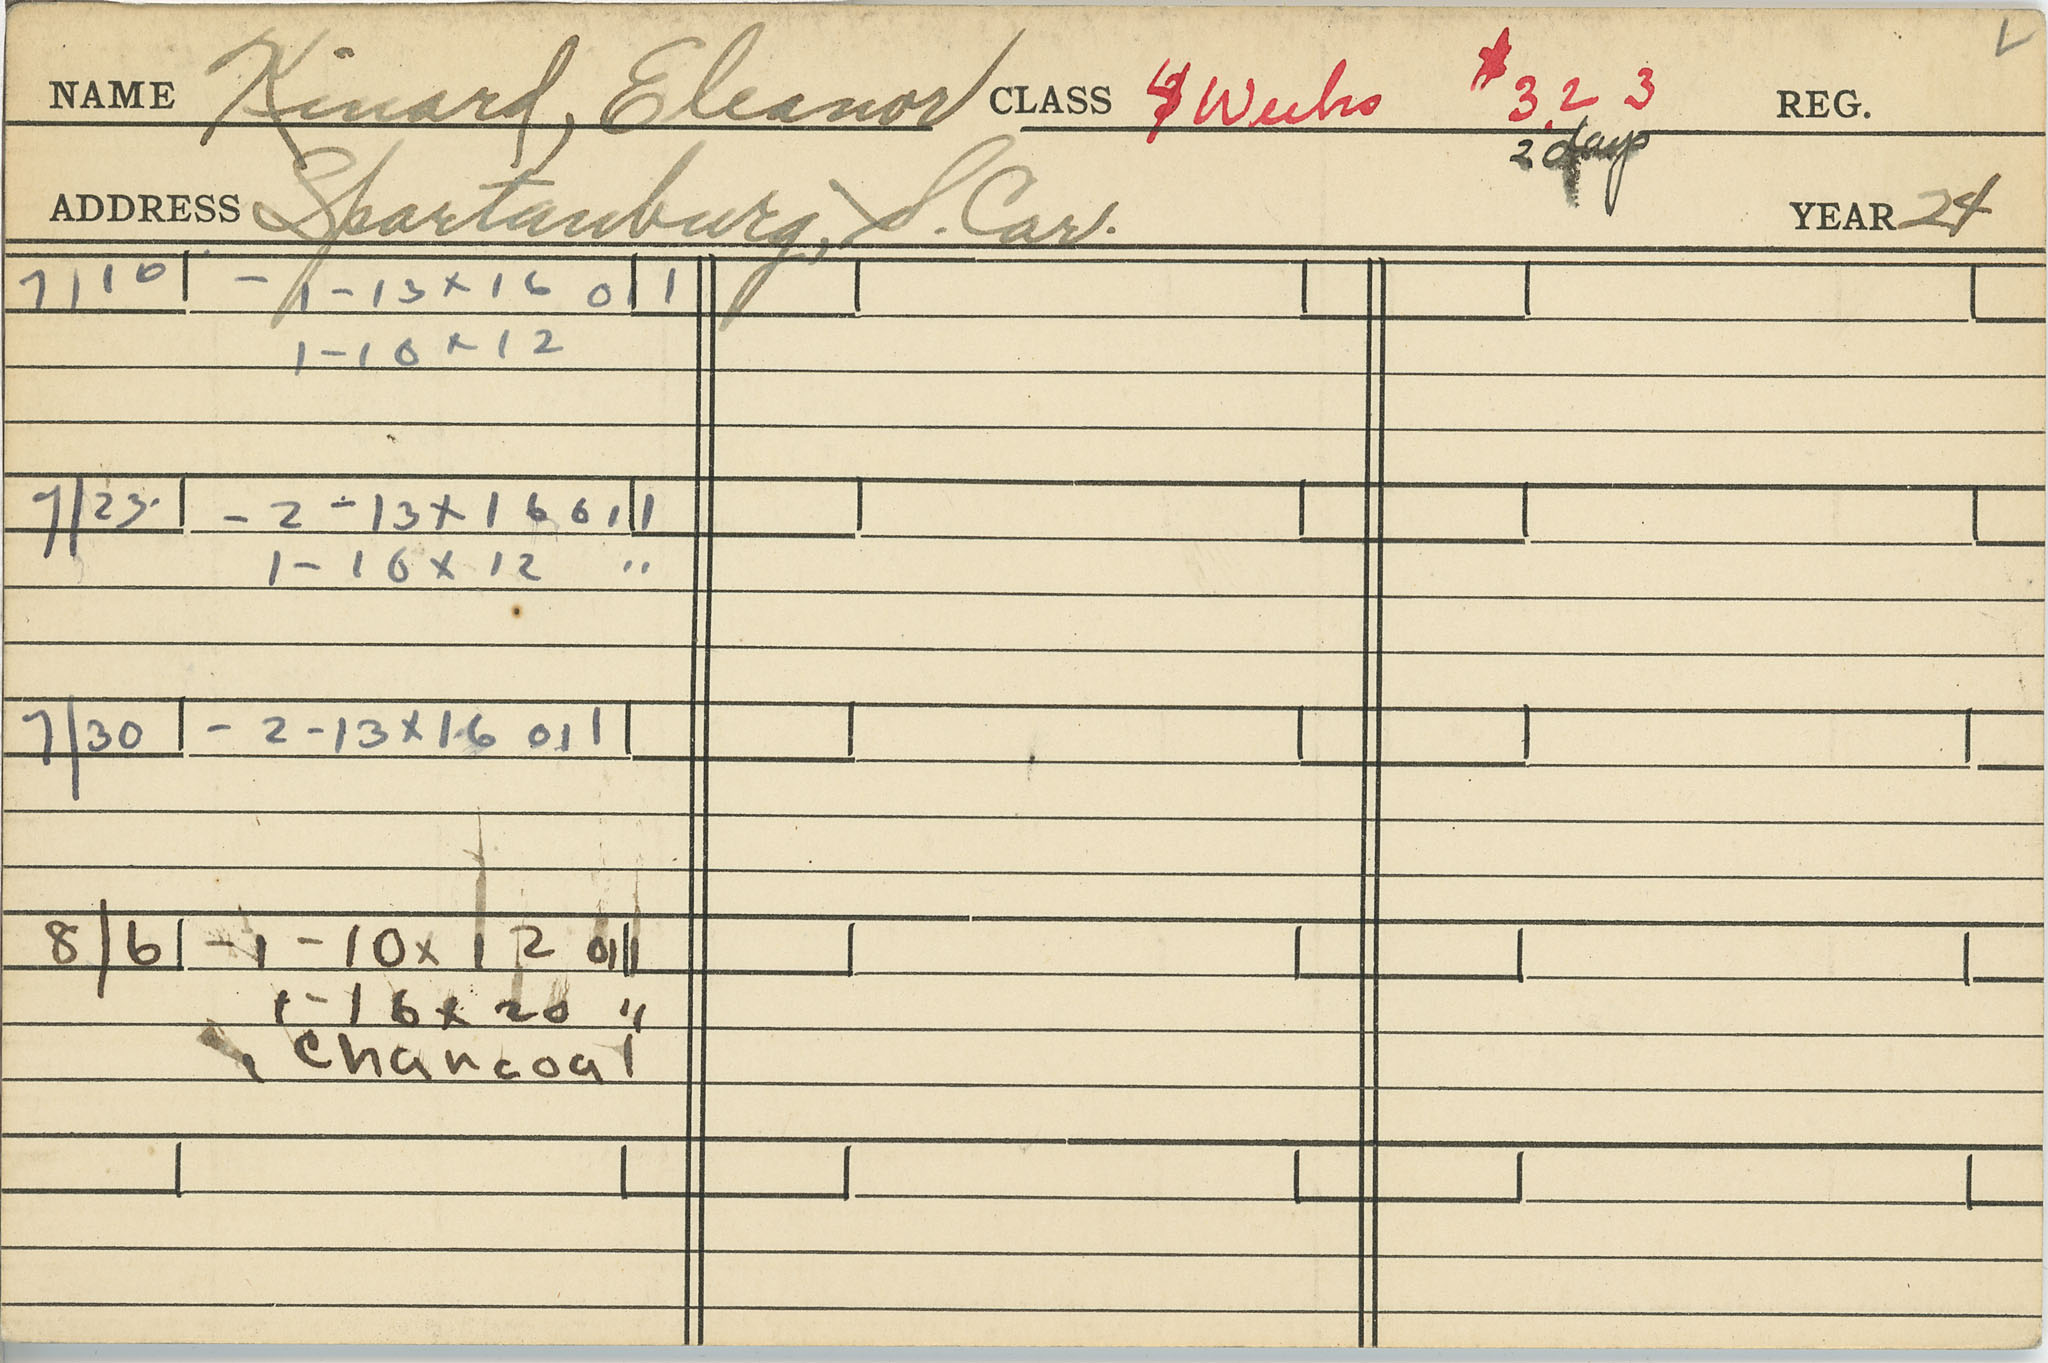 NAME Kinard, Eleanor CLASS 4 Weeks $3.23 REG.
2 days
ADDRESS Spartanburg, S. Car. YEAR 24
7/16 - 1-13x16 oil
1-10x12
7/23 - 2-13x16 oil
1-10x12 "
7/30 - 2-13x16 oil
8/6 - 1-10x12 oil
1-16x20 "
1 Charcoal